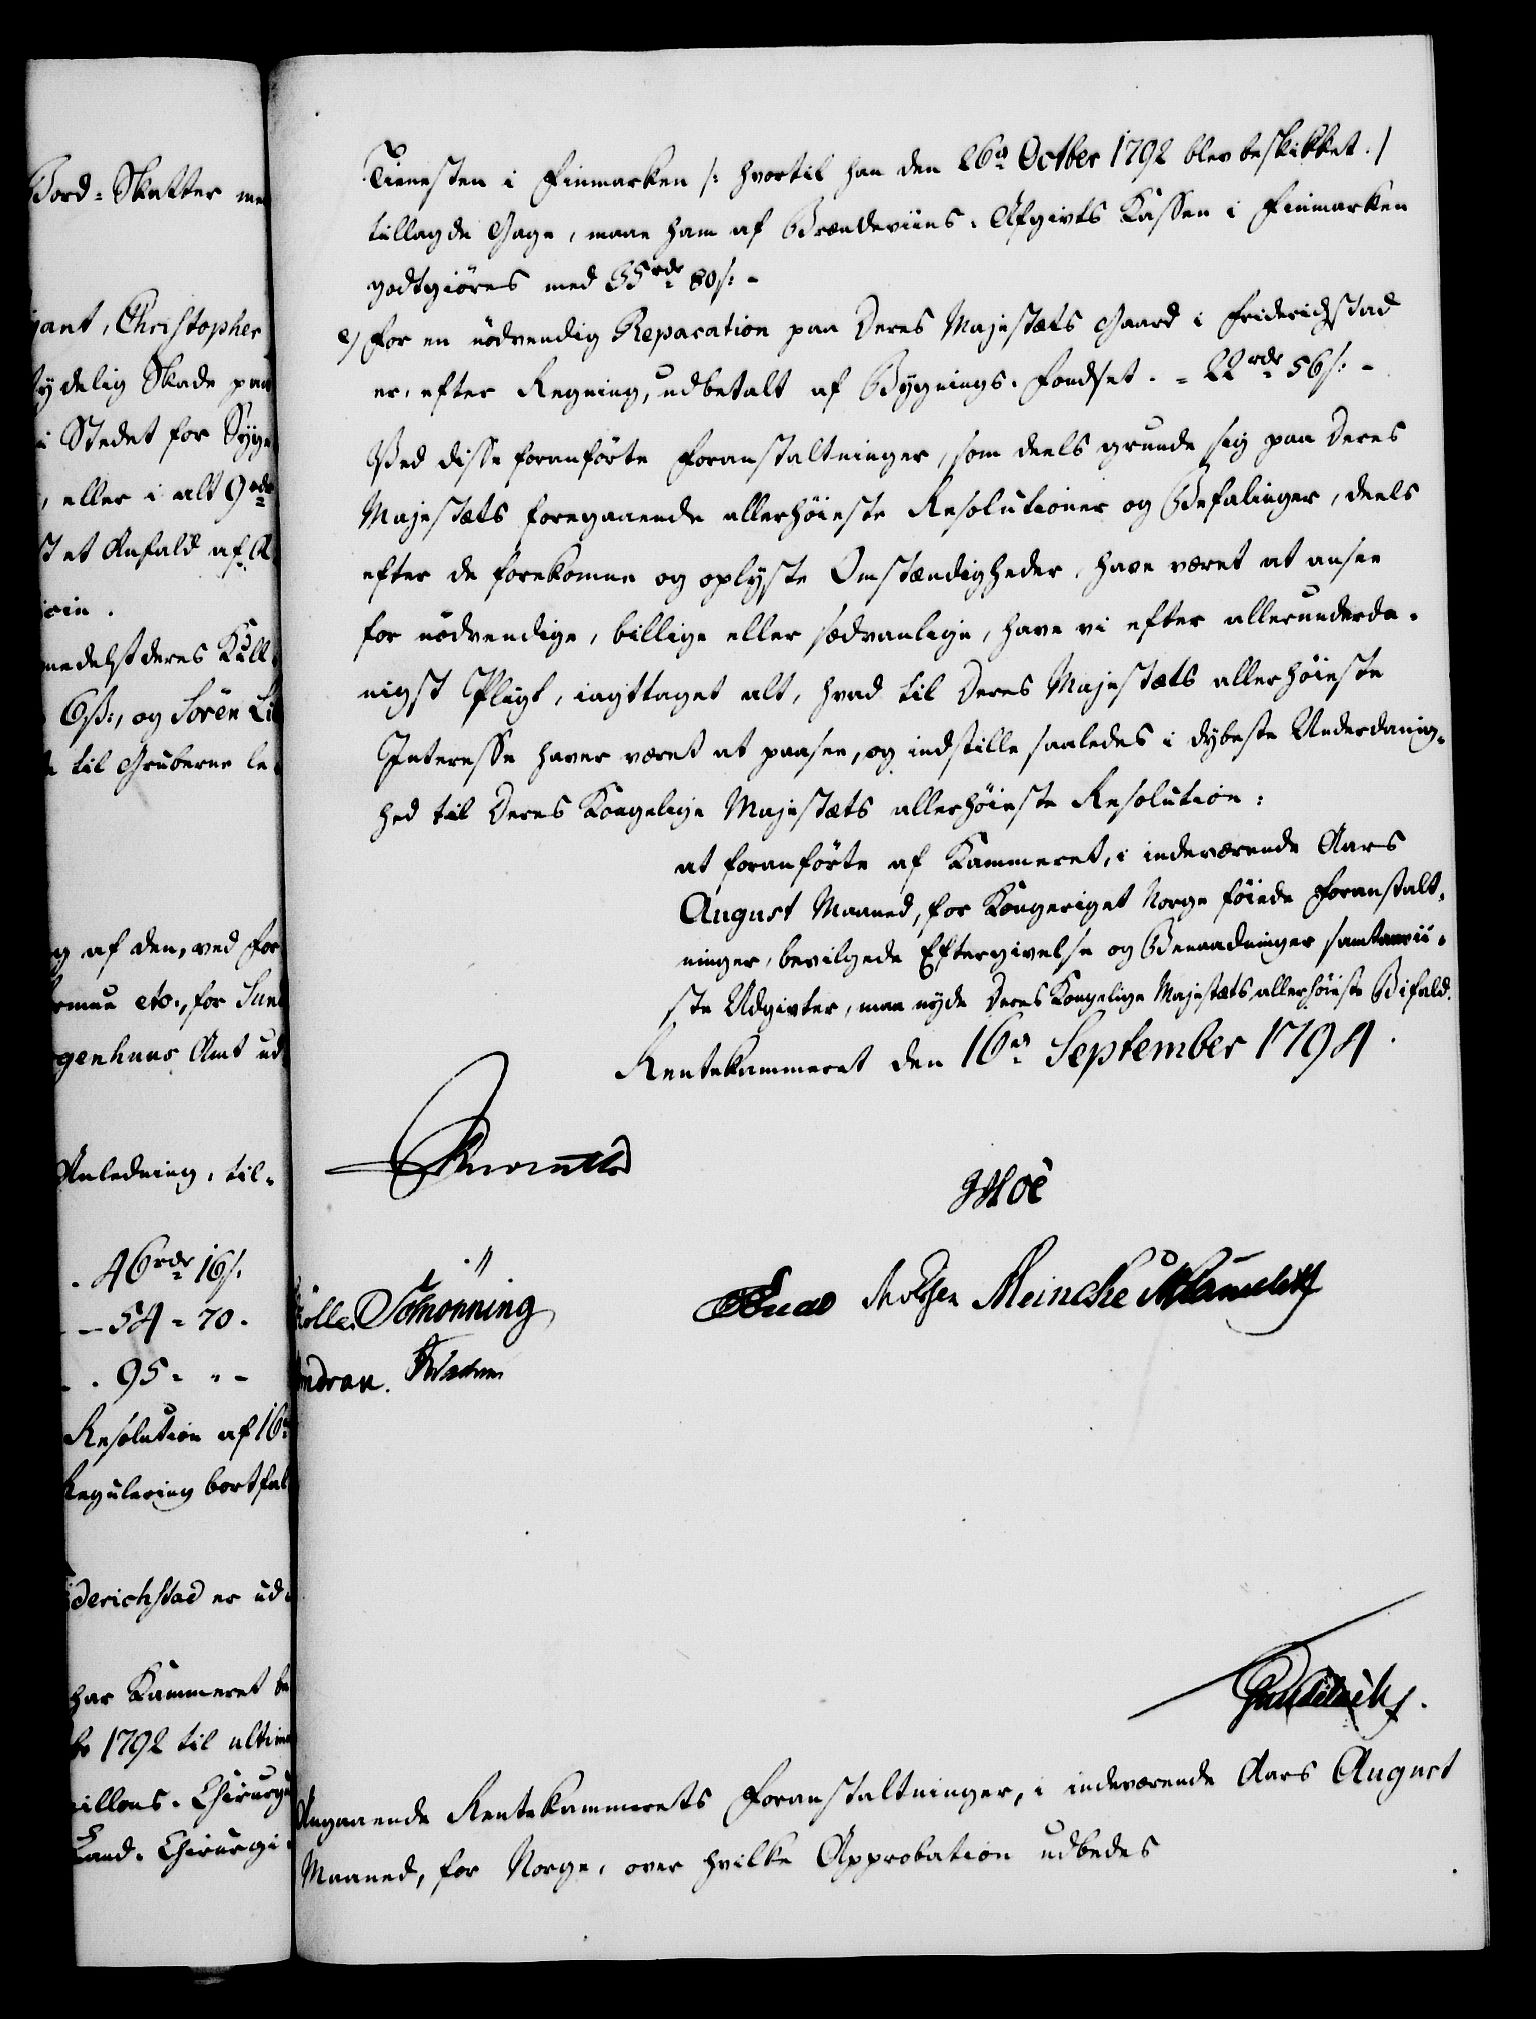 Bord-Skatter me
gant, Christopher
tydelig Skade paa
i Stedet for Syge
, eller i alt 9 rdr
st et Anfald af
medelst deres Kull
6 ß:, og Sören Li
til Gruberne le
g af den, ved For
etc:, for Sun
genhuus Amt ud
Anledning, til-
- 46 rdr 16 ß.
- - 54 - 70 -
- - 95 - " -
Resolution af 16
Regulering bortfal
iderichstad er ud-
har Kammeret be
1792 til ultimo
Chirurgu
Land-Chirurgi-
Tienesten i Finmarken /: hvortil han den 26de Octbr 1792 blev beskikket :/
tillagde Gage, maae ham af Brændeviins-Afgivts Kassen i Finmarken
godtgiöres med 55 rdr 80 ß: -
e) For en nödvendig Reparation paa Deres Majestæts Gaard i Friderichstad
er, efter Regning, udbetalt af Bygnings-Fondset - - 22 rdr 56 ß: -
Ved disse foranförte Foranstaltninger, som deels grunde sig paa Deres
Majestæts foregaaende allerhöieste Resolutioner og Befalinger, deels
efter de forekomne og oplyste Omstændigheder, have været at ansee
for nödvendige, billige eller sædvanlige, have vi efter allerunderda-
nigst Pligt, iagttaget alt, hvad til Deres Majestæts allerhöieste
Interesse haver været at paasee, og indstille saaledes i dybeste Underdanig-
hed til Deres Kongelige Majestæts allerhöieste Resolution:
at foranförte af Kammeret, i indeværende Aars
August Maaned, for Kongeriget Norge föiede Foranstalt-
ninger, bevilgede Eftergivelse og Benaadninger samt anvii-
ste Udgivter, maae nyde Deres Kongelige Majestæts allerhöieste Bifald.
Rentekammeret den 16de September 1794.
Moe
Meincke
Schönning
Angaaende Rentekammerets Foranstaltninger, i indeværende Aars August
Maaned, for Norge, over hvilke Approbation udbedes